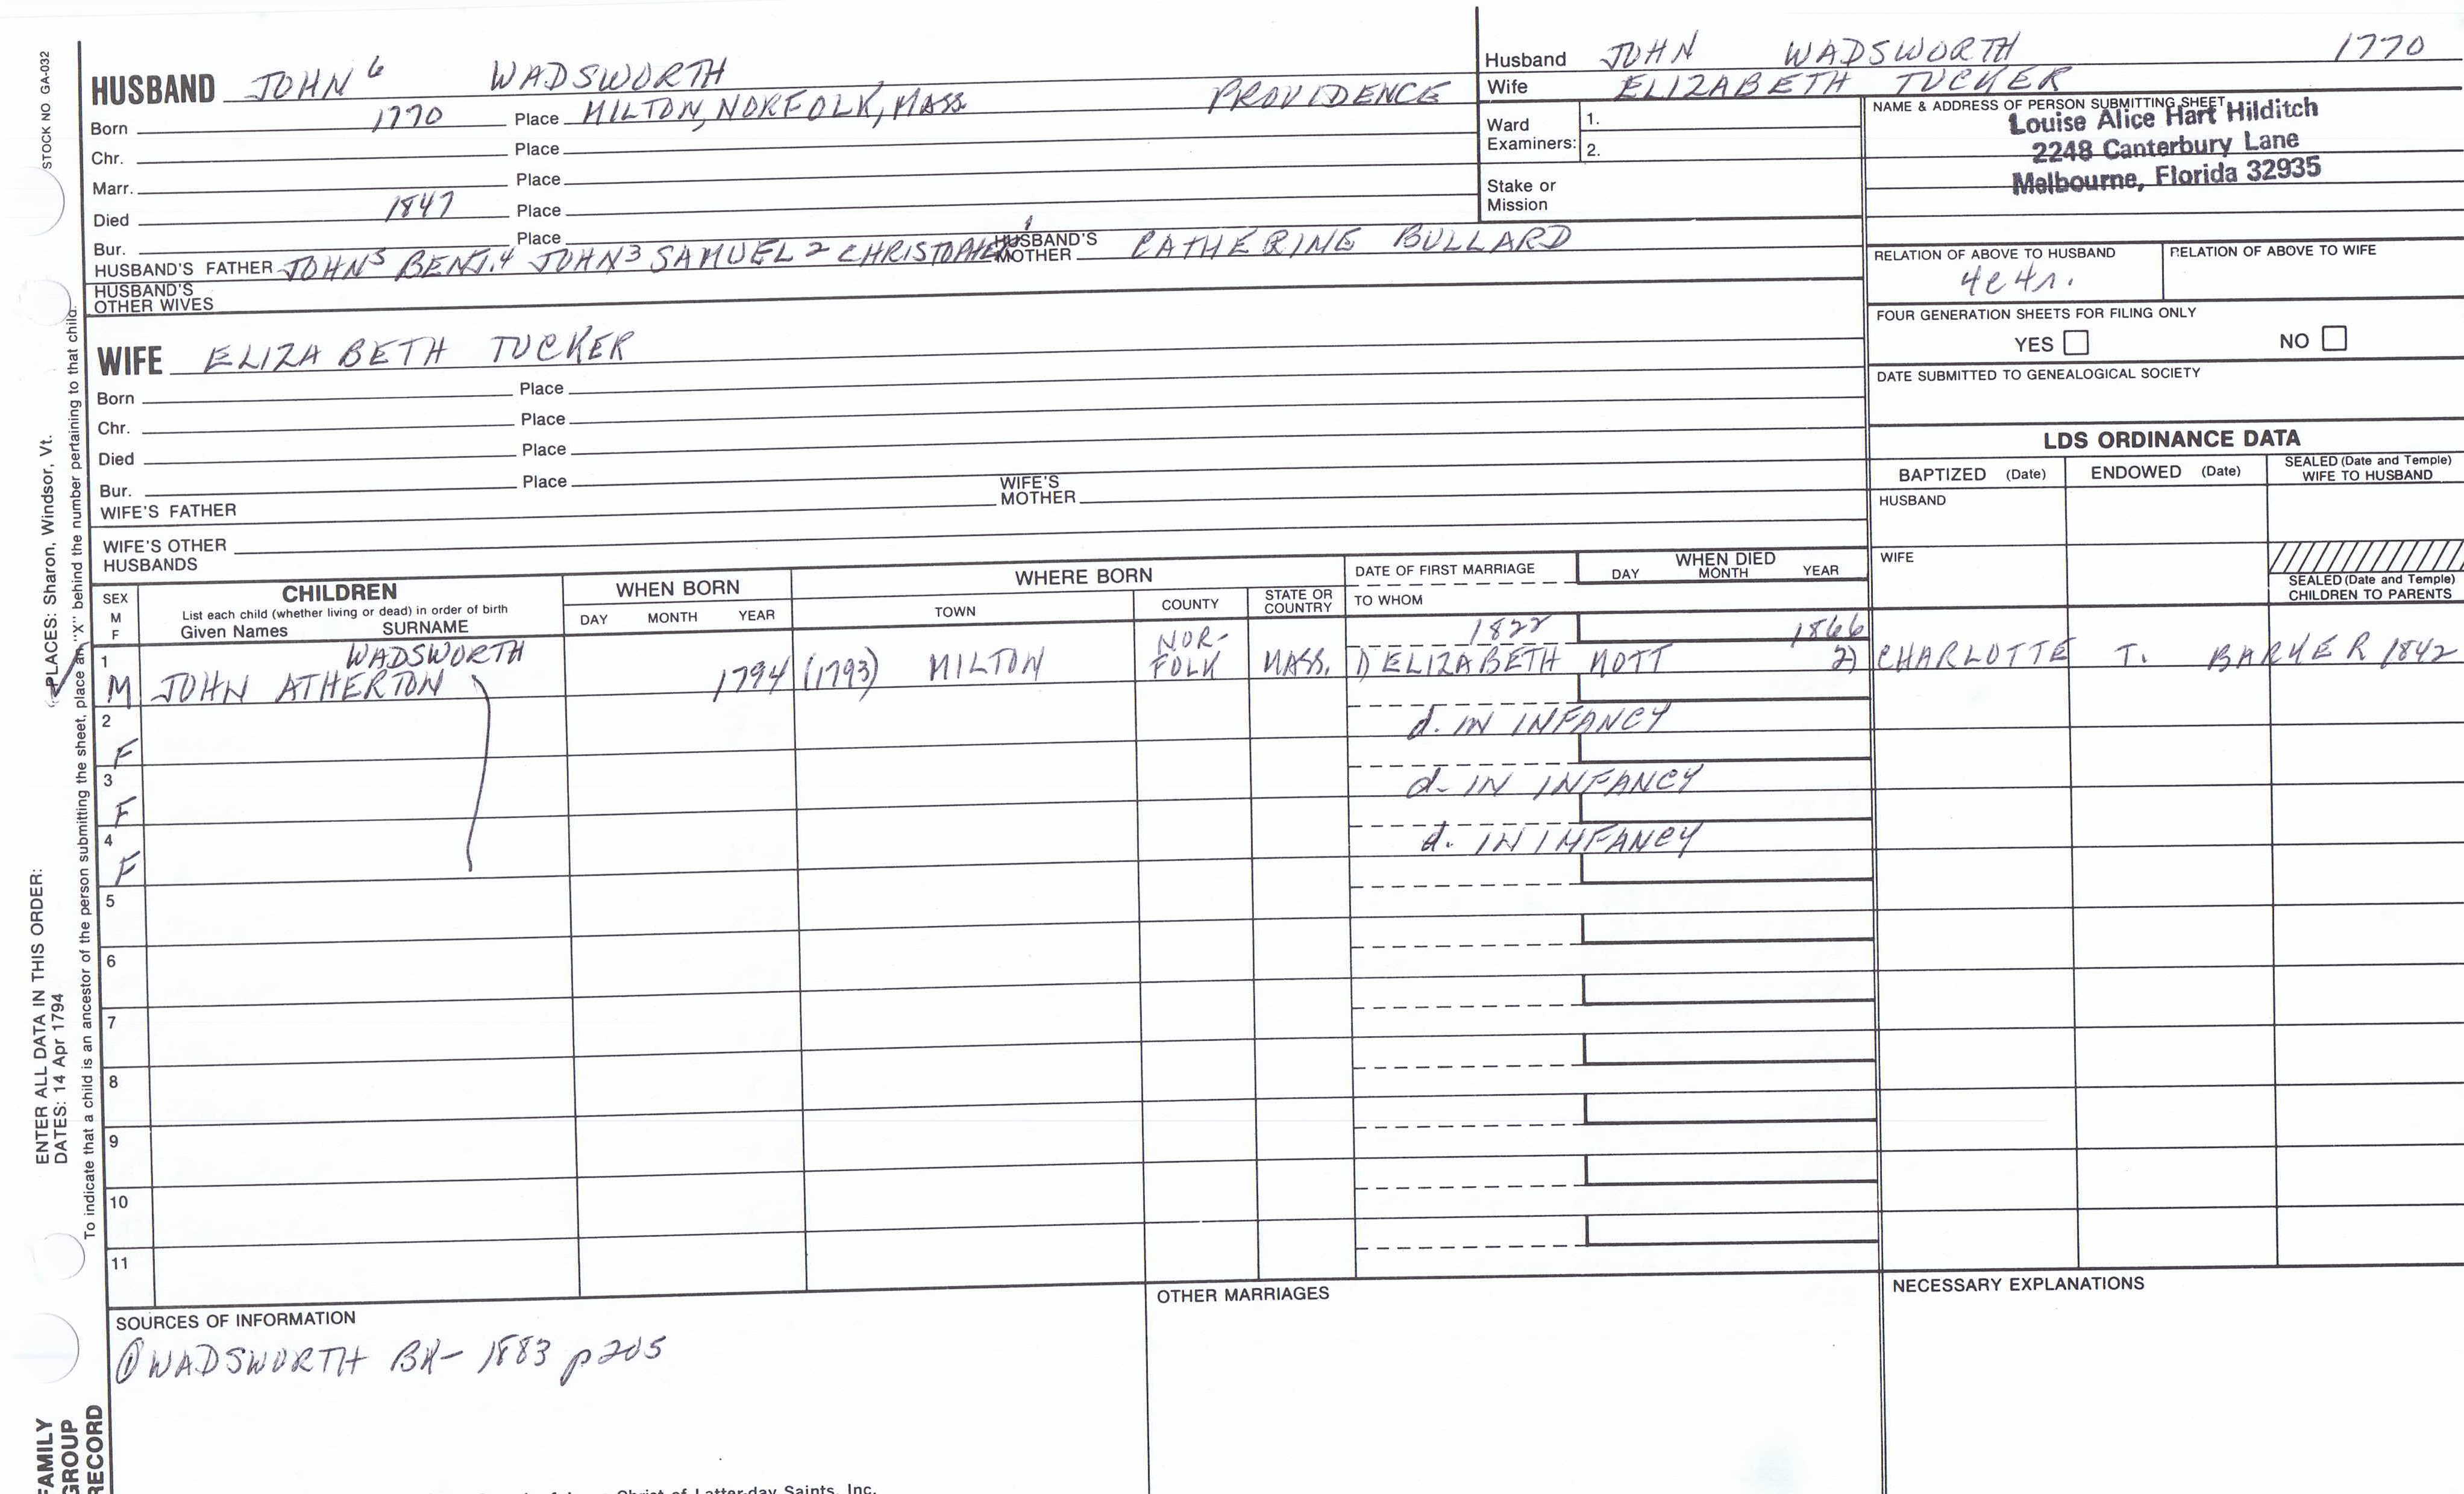 STOCK NO GA-032
HUSBAND JOHN 6 WADSWORTH
Born 1770 Place MILTON, NORFOLK, MASS. PROVIDENCE
Chr. Place
Marr. Place
Died 1847 Place
Bur. Place
HUSBAND'S FATHER JOHN 5 BENJ. 4 JOHN 3 SAMUEL 2 CHRISTOPHER 1 HUSBAND'S MOTHER CATHERINE BULLARD
HUSBAND'S OTHER WIVES
Husband JOHN WADSWORTH 1770
Wife ELIZABETH TUCKER
Ward Examiners: 1.
2.
Stake or Mission
NAME & ADDRESS OF PERSON SUBMITTING SHEET
Louise Alice Hart Hilditch
2248 Canterbury Lane
Melbourne, Florida 32935
RELATION OF ABOVE TO HUSBAND RELATION OF ABOVE TO WIFE
4c4r.
FOUR GENERATION SHEETS FOR FILING ONLY
YES NO
DATE SUBMITTED TO GENEALOGICAL SOCIETY
WIFE ELIZABETH TUCKER
Born Place
Chr. Place
Died Place
Bur. Place
WIFE'S FATHER WIFE'S MOTHER
WIFE'S OTHER HUSBANDS
LDS ORDINANCE DATA
BAPTIZED (Date) ENDOWED (Date) SEALED (Date and Temple) WIFE TO HUSBAND
HUSBAND
WIFE
SEALED (Date and Temple) CHILDREN TO PARENTS
SEX M F
CHILDREN
List each child (whether living or dead) in order of birth
Given Names SURNAME
WHEN BORN
DAY MONTH YEAR
WHERE BORN
TOWN COUNTY STATE OR COUNTRY
DATE OF FIRST MARRIAGE
TO WHOM
WHEN DIED
DAY MONTH YEAR
1 WADSWORTH NOR- 1822 1866
M JOHN ATHERTON 1794 (1793) MILTON FOLK MASS. 1) ELIZABETH MOTT 2) CHARLOTTE T. BARKER 1842
2
F d. IN INFANCY
3
F d. IN INFANCY
4
F d. IN INFANCY
5
6
7
8
9
10
11
SOURCES OF INFORMATION
① WADSWORTH BK- 1883 p 205
OTHER MARRIAGES
NECESSARY EXPLANATIONS
ENTER ALL DATA IN THIS ORDER:
DATES: 14 Apr 1794
PLACES: Sharon, Windsor, Vt.
To indicate that a child is an ancestor of the person submitting the sheet, place an "X" behind the number pertaining to that child.
FAMILY
GROUP
RECORD
Christ of Latter-day Saints, Inc.